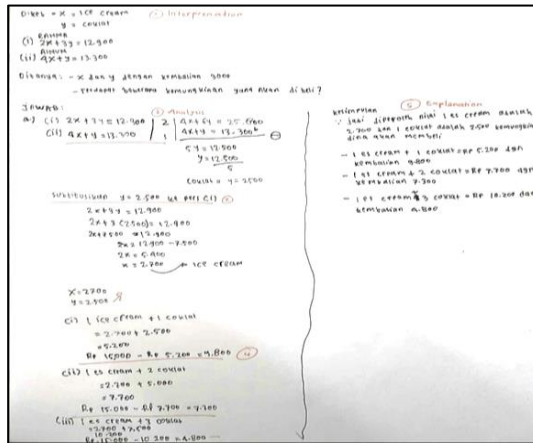 Diket = x = ice cream
y = coklat
① Interpretation
RAHMA
(i) 2x + 3y = 12.900
(ii) 4x + y = 13.300
Ditanya: - x dan y dengan kembalian
- terdapat beberapa kemungkinan yang akan dibeli?
JAWAB:
③ Analysis
a) (i) 2x + 3y = 12.900 | 2 | 4x + 6y = 25.800
(ii) 4x + y = 13.300 | 1 | 4x + y = 13.300 ⊖
5y = 12.500
y = 12.500
5
coklat = y = 2500
substitusikan y = 2.500 ke pers (i)
2x + 3y = 12.900
2x + 3(2500) = 12.900
2x + 7500 = 12.900
2x = 12.900 - 7.500
2x = 5.400
x = 2.700 → ice cream
x = 2700
y = 2.500
(i) 1 ice cream + 1 coklat
= 2.700 + 2.500
= 5.200
Rp 15.000 - Rp 5.200 = 9.800 ④
(ii) 1 es cream + 2 coklat
= 2.700 + 5.000
= 7.700
Rp 15.000 - Rp 7.700 = 7.300
(iii) 1 es cream + 3 coklat
= 2.700 + 7.500
10.200
Rp 15.000 - 10.200 = 4.800
⑤ Explanation
kesimpulan
∴ jadi diperoleh nilai 1 es cream adalah
2.700 dan 1 coklat adalah 2.500 kemungkinan
dina akan membeli
- 1 es cream + 1 coklat = Rp 5.200 dgn
kembalian 9.800
- 1 es cream + 2 coklat = Rp 7.700 dgn
kembalian 7.300
- 1 es cream + 3 coklat = Rp 10.200 dgn
kembalian 4.800